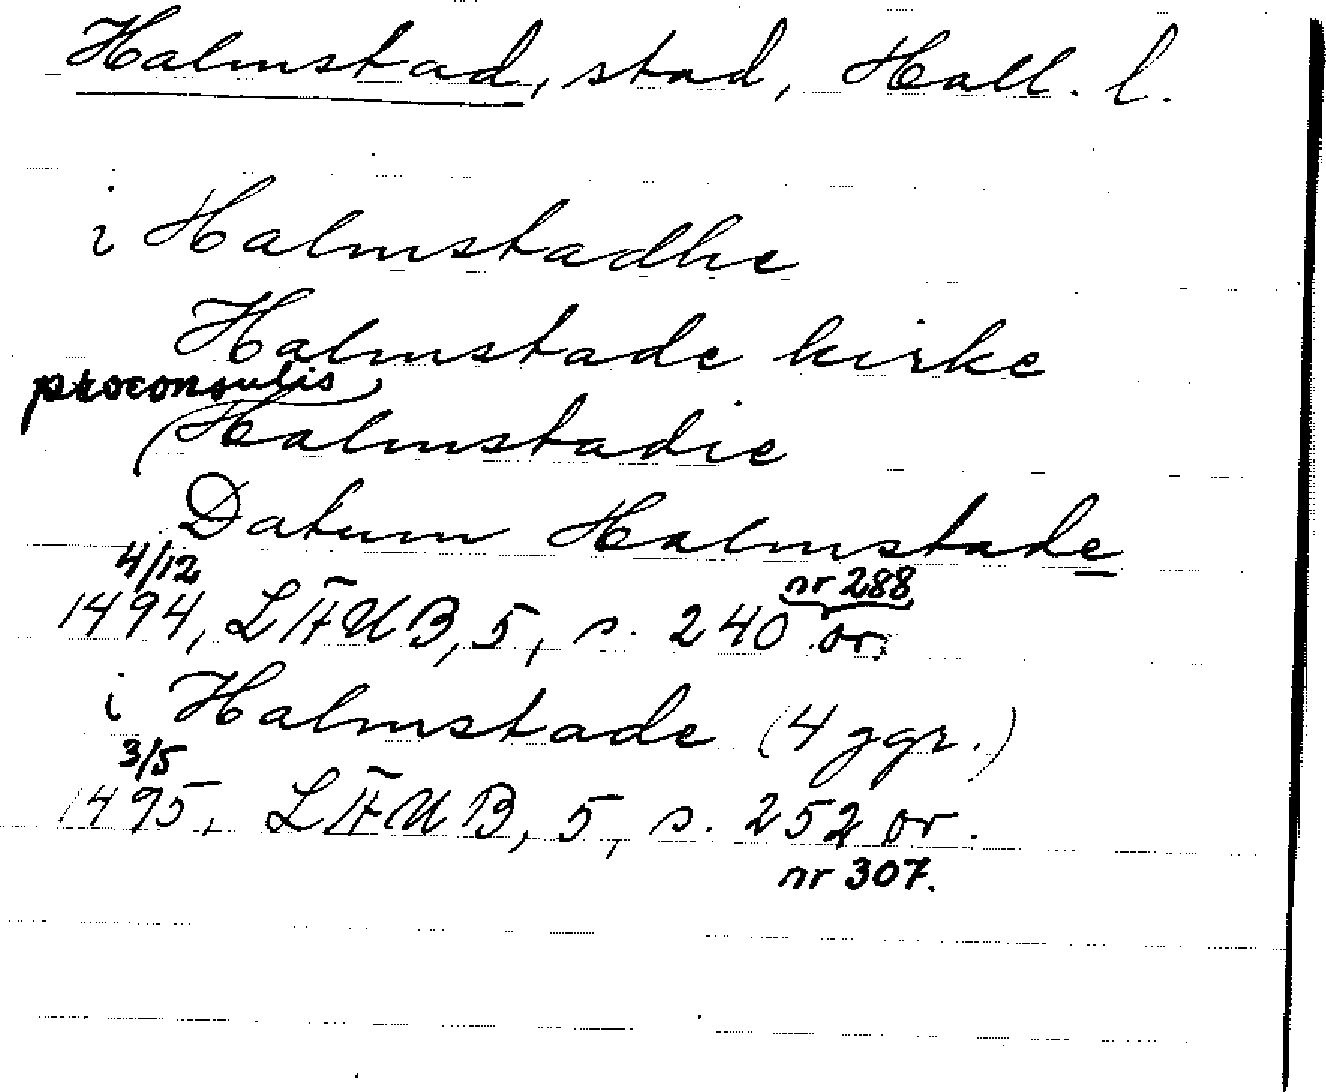 Halmstad, stad, Hall. l.
i Halmstadhe
Halmstade kirke
proconsulis
(Halmstadie
Datum Halmstade
4/12 nr 288
1494, LÄUB, 5, s. 240 or.
i Halmstade (4 ggr.)
3/5
1495, LÄUB, 5, s. 252 or.
nr 307.